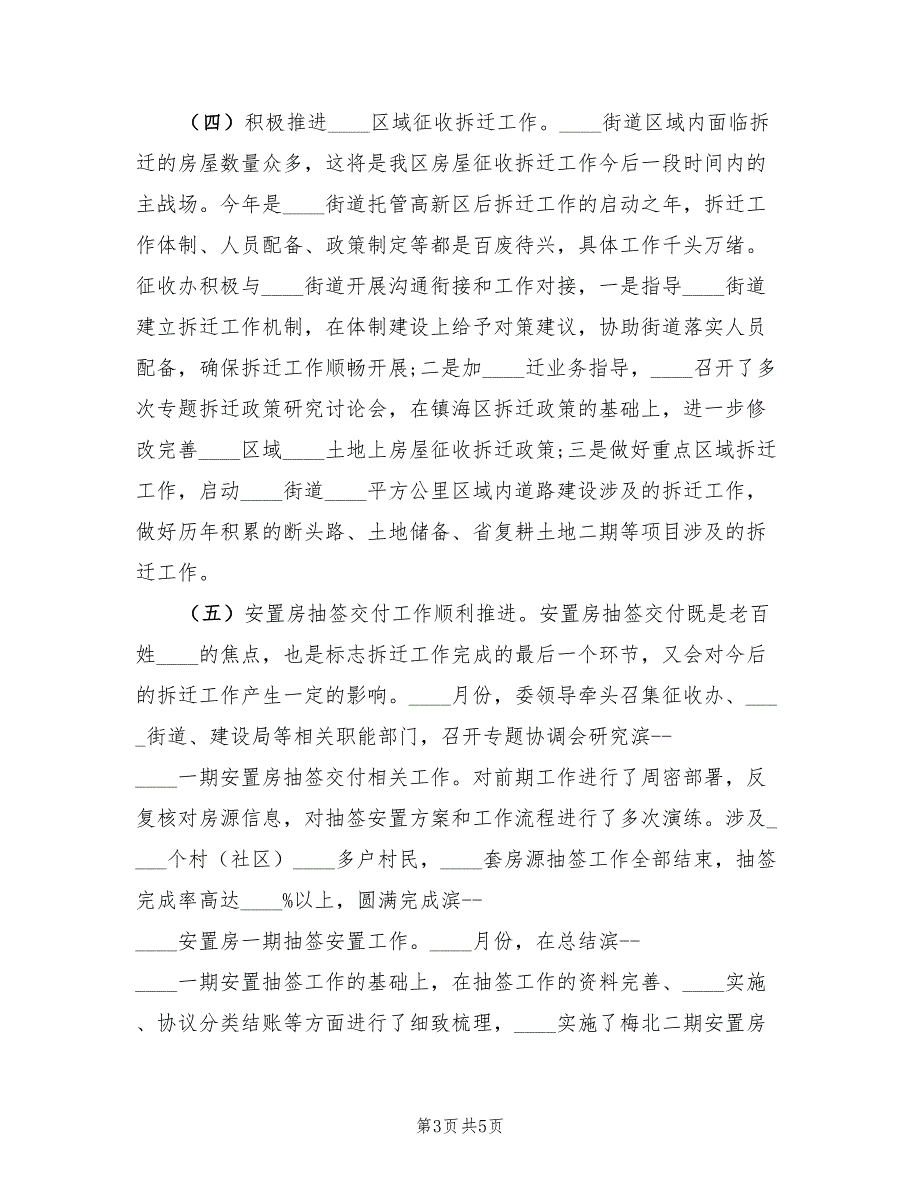 （四）积极推进____区域征收拆迁工作。____街道区域内面临拆
迁的房屋数量众多，这将是我区房屋征收拆迁工作今后一段时间内的
主战场。今年是____街道托管高新区后拆迁工作的启动之年，拆迁工
作体制、人员配备、政策制定等都是百废待兴，具体工作千头万绪。
征收办积极与____街道开展沟通衔接和工作对接，一是指导____街道
建立拆迁工作机制，在体制建设上给予对策建议，协助街道落实人员
配备，确保拆迁工作顺畅开展;二是加____迁业务指导，____召开了多
次专题拆迁政策研究讨论会，在镇海区拆迁政策的基础上，进一步修
改完善____区域____土地上房屋征收拆迁政策;三是做好重点区域拆迁
工作，启动____街道____平方公里区域内道路建设涉及的拆迁工作，
做好历年积累的断头路、土地储备、省复耕土地二期等项目涉及的拆
迁工作。
（五）安置房抽签交付工作顺利推进。安置房抽签交付既是老百
姓____的焦点，也是标志拆迁工作完成的最后一个环节，又会对今后
的拆迁工作产生一定的影响。____月份，委领导牵头召集征收办、___
_街道、建设局等相关职能部门，召开专题协调会研究滨--
____一期安置房抽签交付相关工作。对前期工作进行了周密部署，反
复核对房源信息，对抽签安置方案和工作流程进行了多次演练。涉及_
___个村（社区）____多户村民，____套房源抽签工作全部结束，抽签
完成率高达____%以上，圆满完成滨--
____安置房一期抽签安置工作。____月份，在总结滨--
____一期安置抽签工作的基础上，在抽签工作的资料完善、____实施
、协议分类结账等方面进行了细致梳理，____实施了梅北二期安置房
第3页 共5页